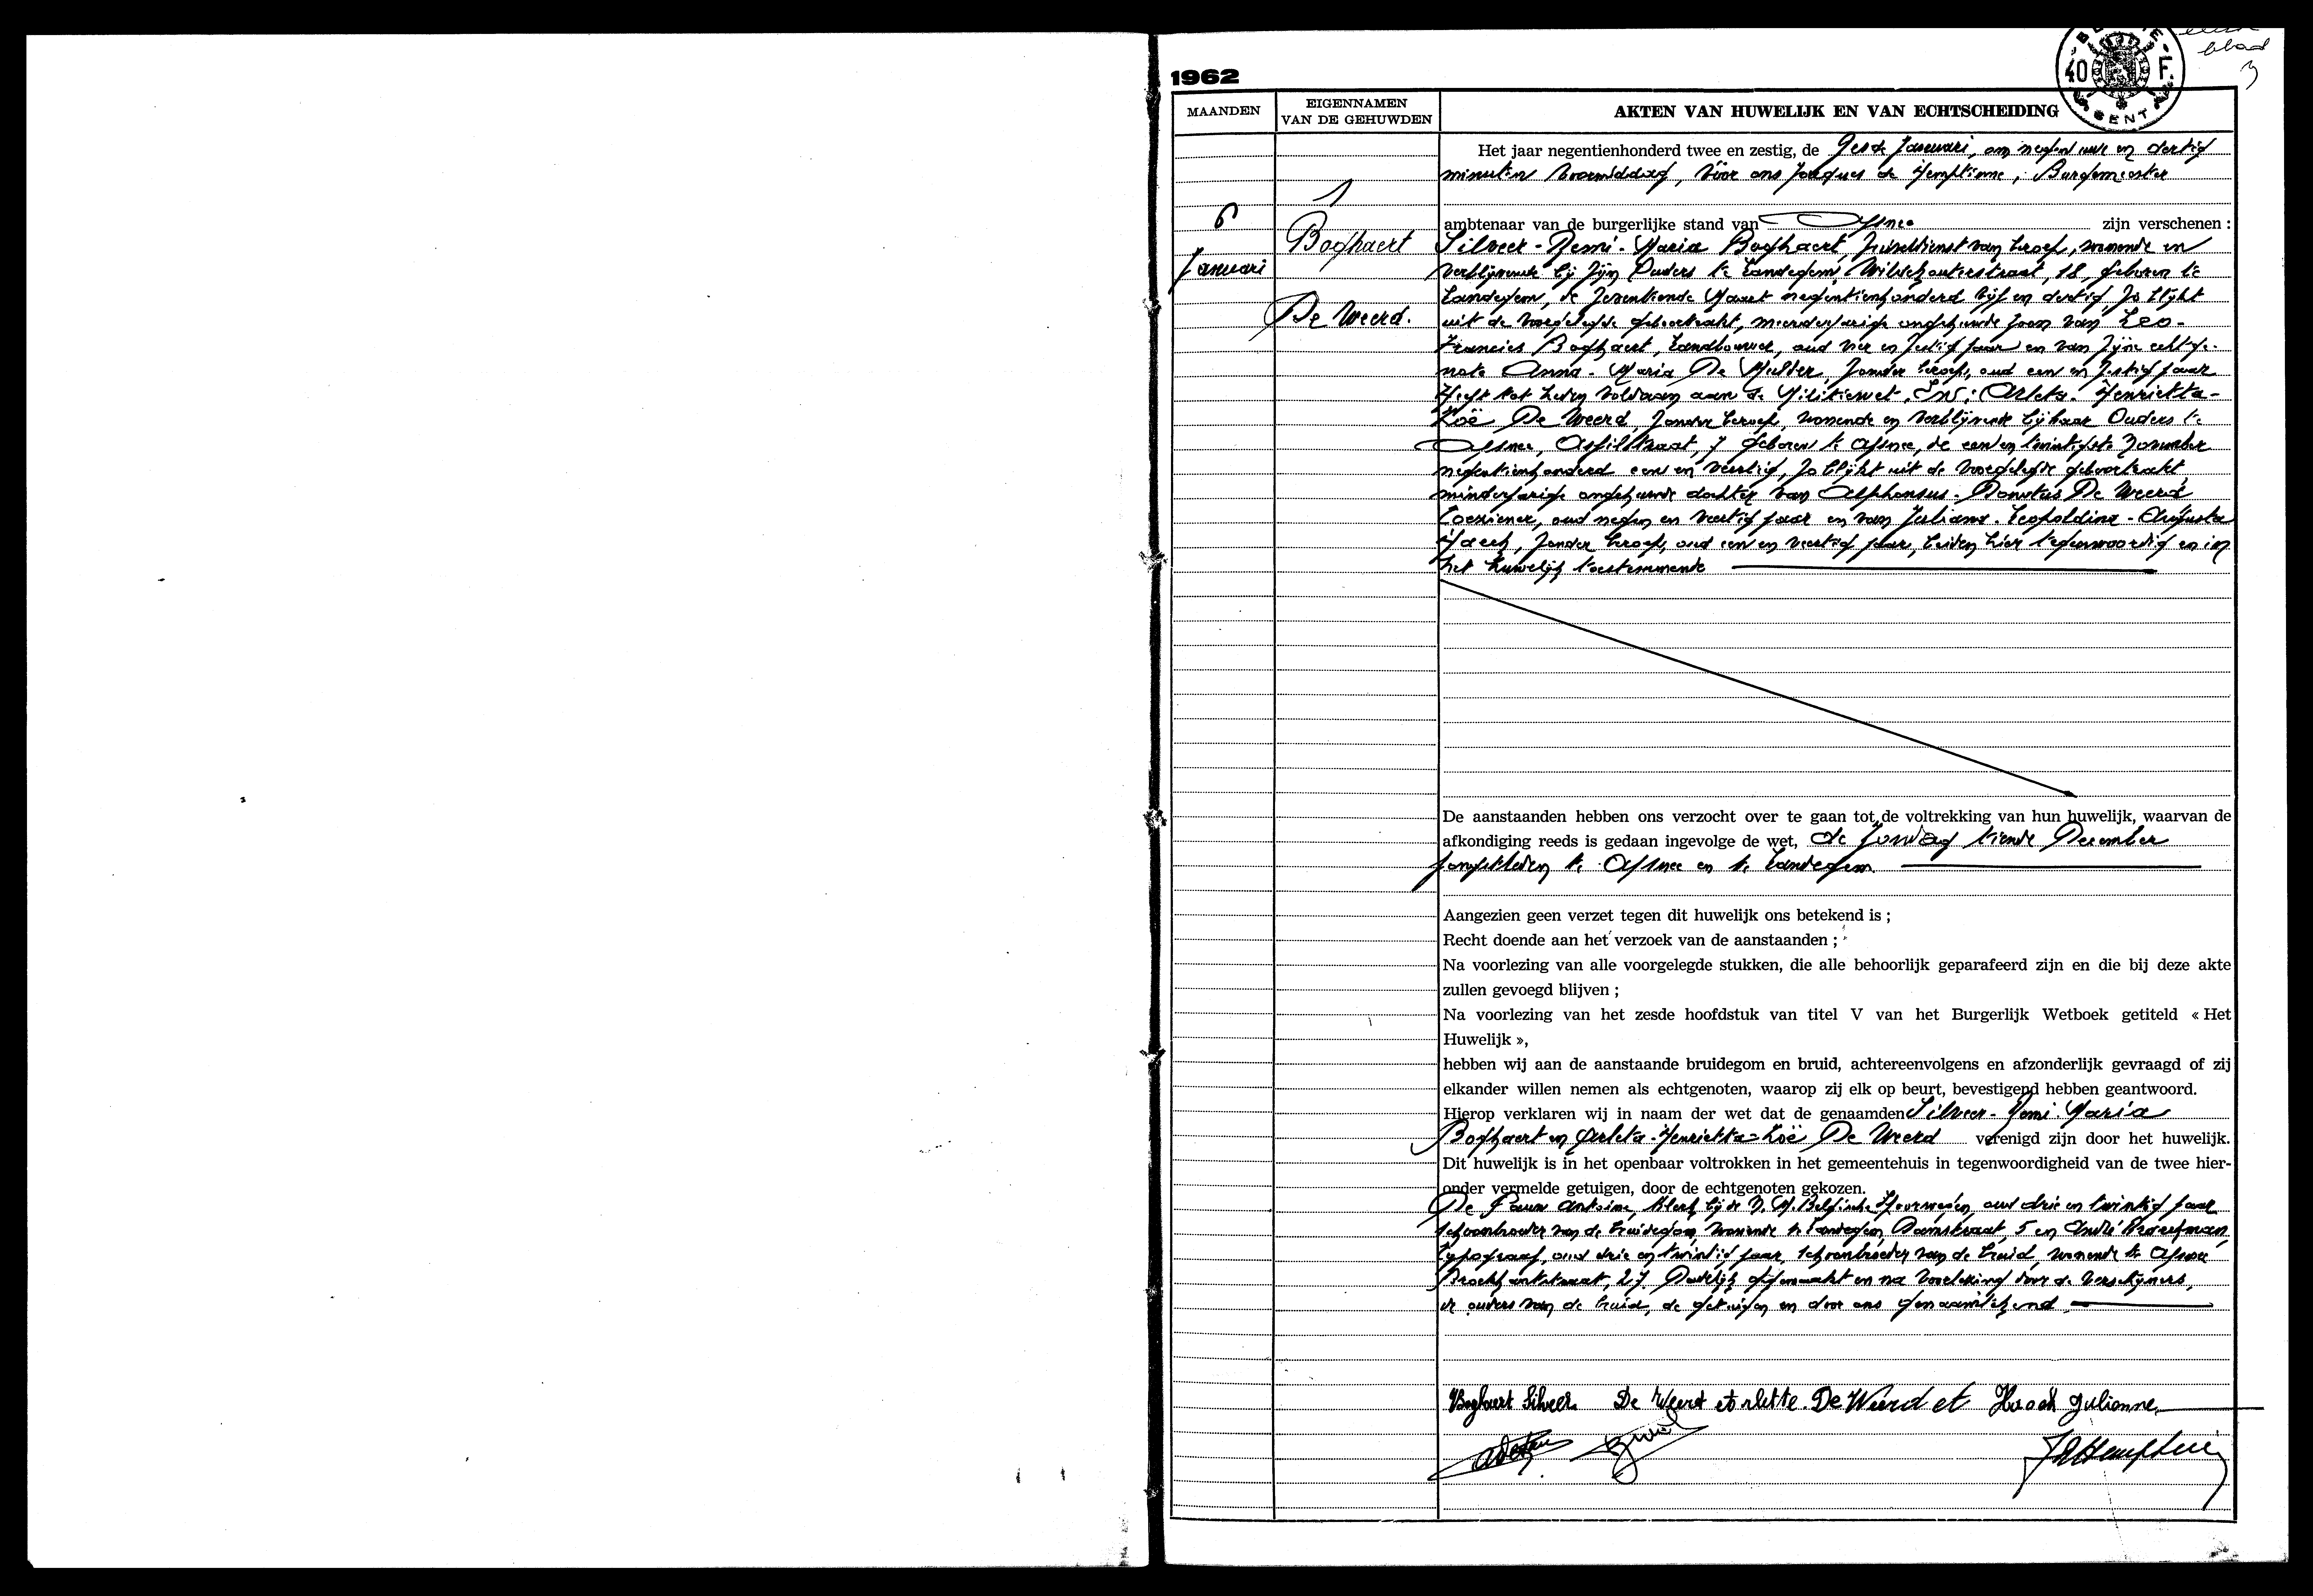 blad
3
40 F.
GENT
1962
MAANDEN
EIGENNAMEN
VAN DE GEHUWDEN
AKTEN VAN HUWELIJK EN VAN ECHTSCHEIDING
Het jaar negentienhonderd twee en zestig, de Zesde Januari, om negen uur en dertig
minuten voormiddag, vóór ons Jacques de Hemptinne, Burgemeester
1
6
Januari
Boghaert
De Weerd.
ambtenaar van de burgerlijke stand van Afsnee zijn verschenen :
Silveer-Remi-Maria Boghaert, van beroep, wonende en
verblijvende bij zijn Ouders te Landegem, 18, geboren te
Landegem, de zeventiende Maart negentienhonderd vijf en dertig, zo blijkt
uit de voorgelegde geboorteakt, meerderjarige ongehuwde zoon van Leo-
Francies Boghaert, Landbouwer, oud vier en zestig jaar en van zijne echtge-
note Anna-Maria De Mulder, zonder beroep, oud een en zestig jaar
Heeft tot heden voldaan aan de Militiewet. En: Arleta-Henrietta-
Zoë De Weerd, zonder beroep, wonende en verblijvende bij haar Ouders te
Afsnee, 7 geboren te Afsnee, de een en twintigste November
negentienhonderd een en veertig, zo blijkt uit de voorgelegde geboorteakt
minderjarige ongehuwde dochter van Alphonsus-Donatus De Weerd
oud negen en veertig jaar en van Juliana-Leopoldina-Augusta
Haeck, zonder beroep, oud een en veertig jaar, beiden hier tegenwoordig en in
het huwelijk toestemmende
De aanstaanden hebben ons verzocht over te gaan tot de voltrekking van hun huwelijk, waarvan de
afkondiging reeds is gedaan ingevolge de wet, de Zondag tiende December
jongstleden te Afsnee en te Landegem
Aangezien geen verzet tegen dit huwelijk ons betekend is ;
Recht doende aan het verzoek van de aanstaanden ;
Na voorlezing van alle voorgelegde stukken, die alle behoorlijk geparafeerd zijn en die bij deze akte
zullen gevoegd blijven ;
Na voorlezing van het zesde hoofdstuk van titel V van het Burgerlijk Wetboek getiteld « Het
Huwelijk »,
hebben wij aan de aanstaande bruidegom en bruid, achtereenvolgens en afzonderlijk gevraagd of zij
elkander willen nemen als echtgenoten, waarop zij elk op beurt, bevestigend hebben geantwoord.
Hierop verklaren wij in naam der wet dat de genaamden Silveer-Remi-Maria
Boghaert en Arleta-Henrietta-Zoë De Weerd verenigd zijn door het huwelijk.
Dit huwelijk is in het openbaar voltrokken in het gemeentehuis in tegenwoordigheid van de twee hier-
onder vermelde getuigen, door de echtgenoten gekozen.
De Pauw Antoine, klerk bij de N. M. Belgische Spoorwegen, oud drie en twintig jaar
schoonbroeder van de bruidegom, wonende te Landegem, Damstraat, 5 en André
typograaf, oud drie en twintig jaar, schoonbroeder van de bruid, wonende te Afsnee
27. Dadelijk opgemaakt en na voorlezing door de verschijners,
de ouders van de bruid, de getuigen en door ons genaamtekend
Boghaert Silveer. De Weerd Arlette. De Weerd et Haeck Julienne